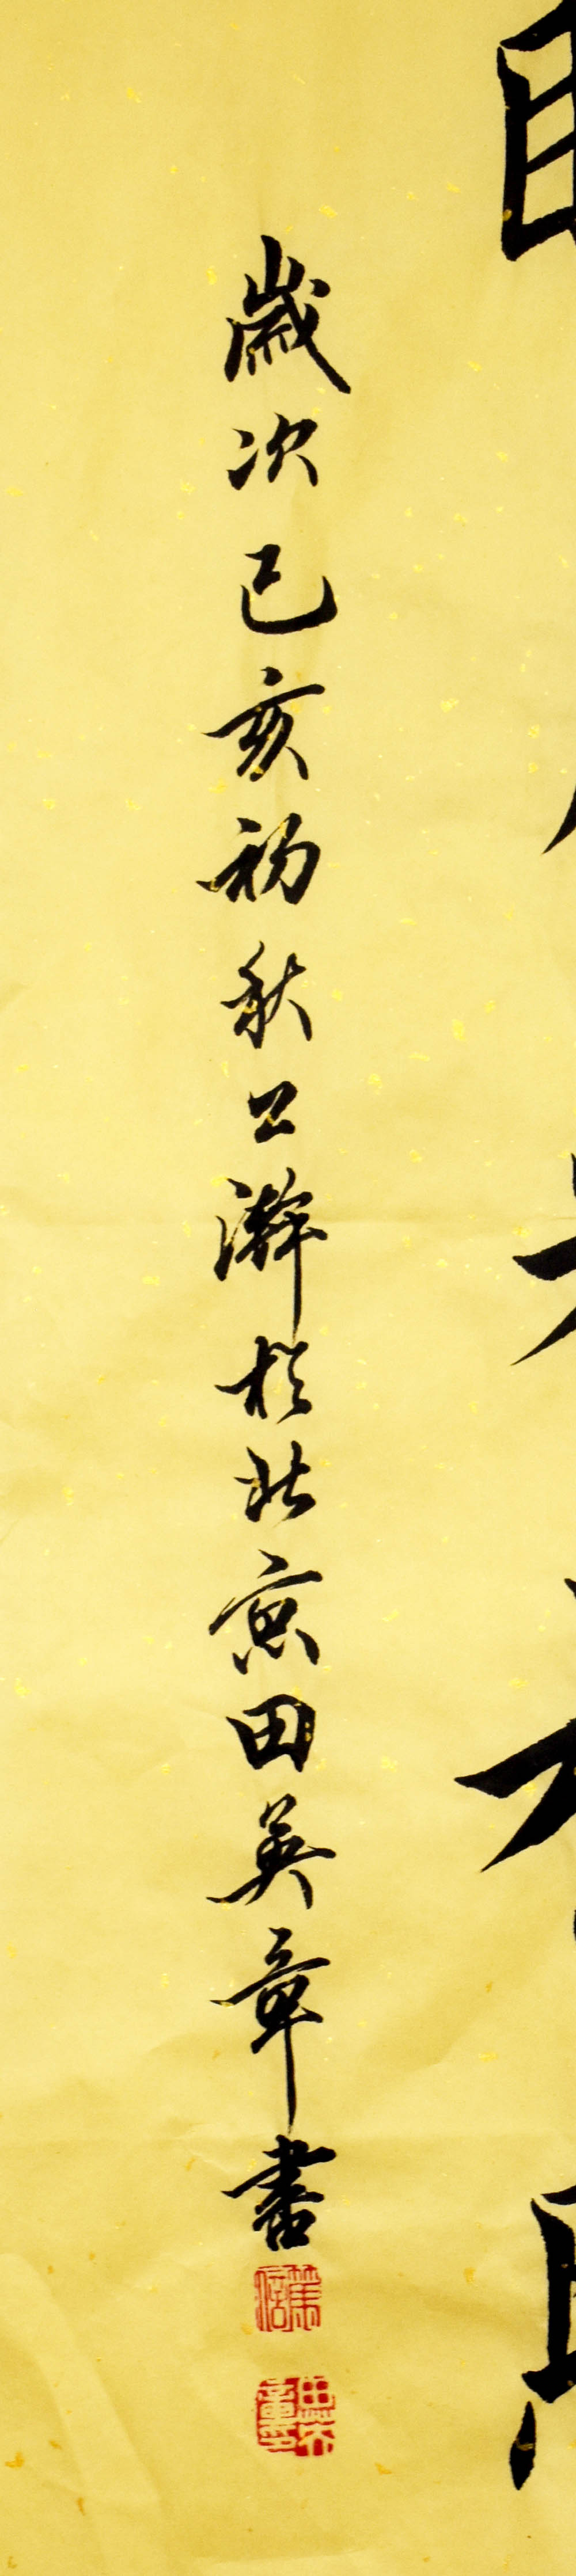 歲次己亥初秋公瀚於北京田英章書